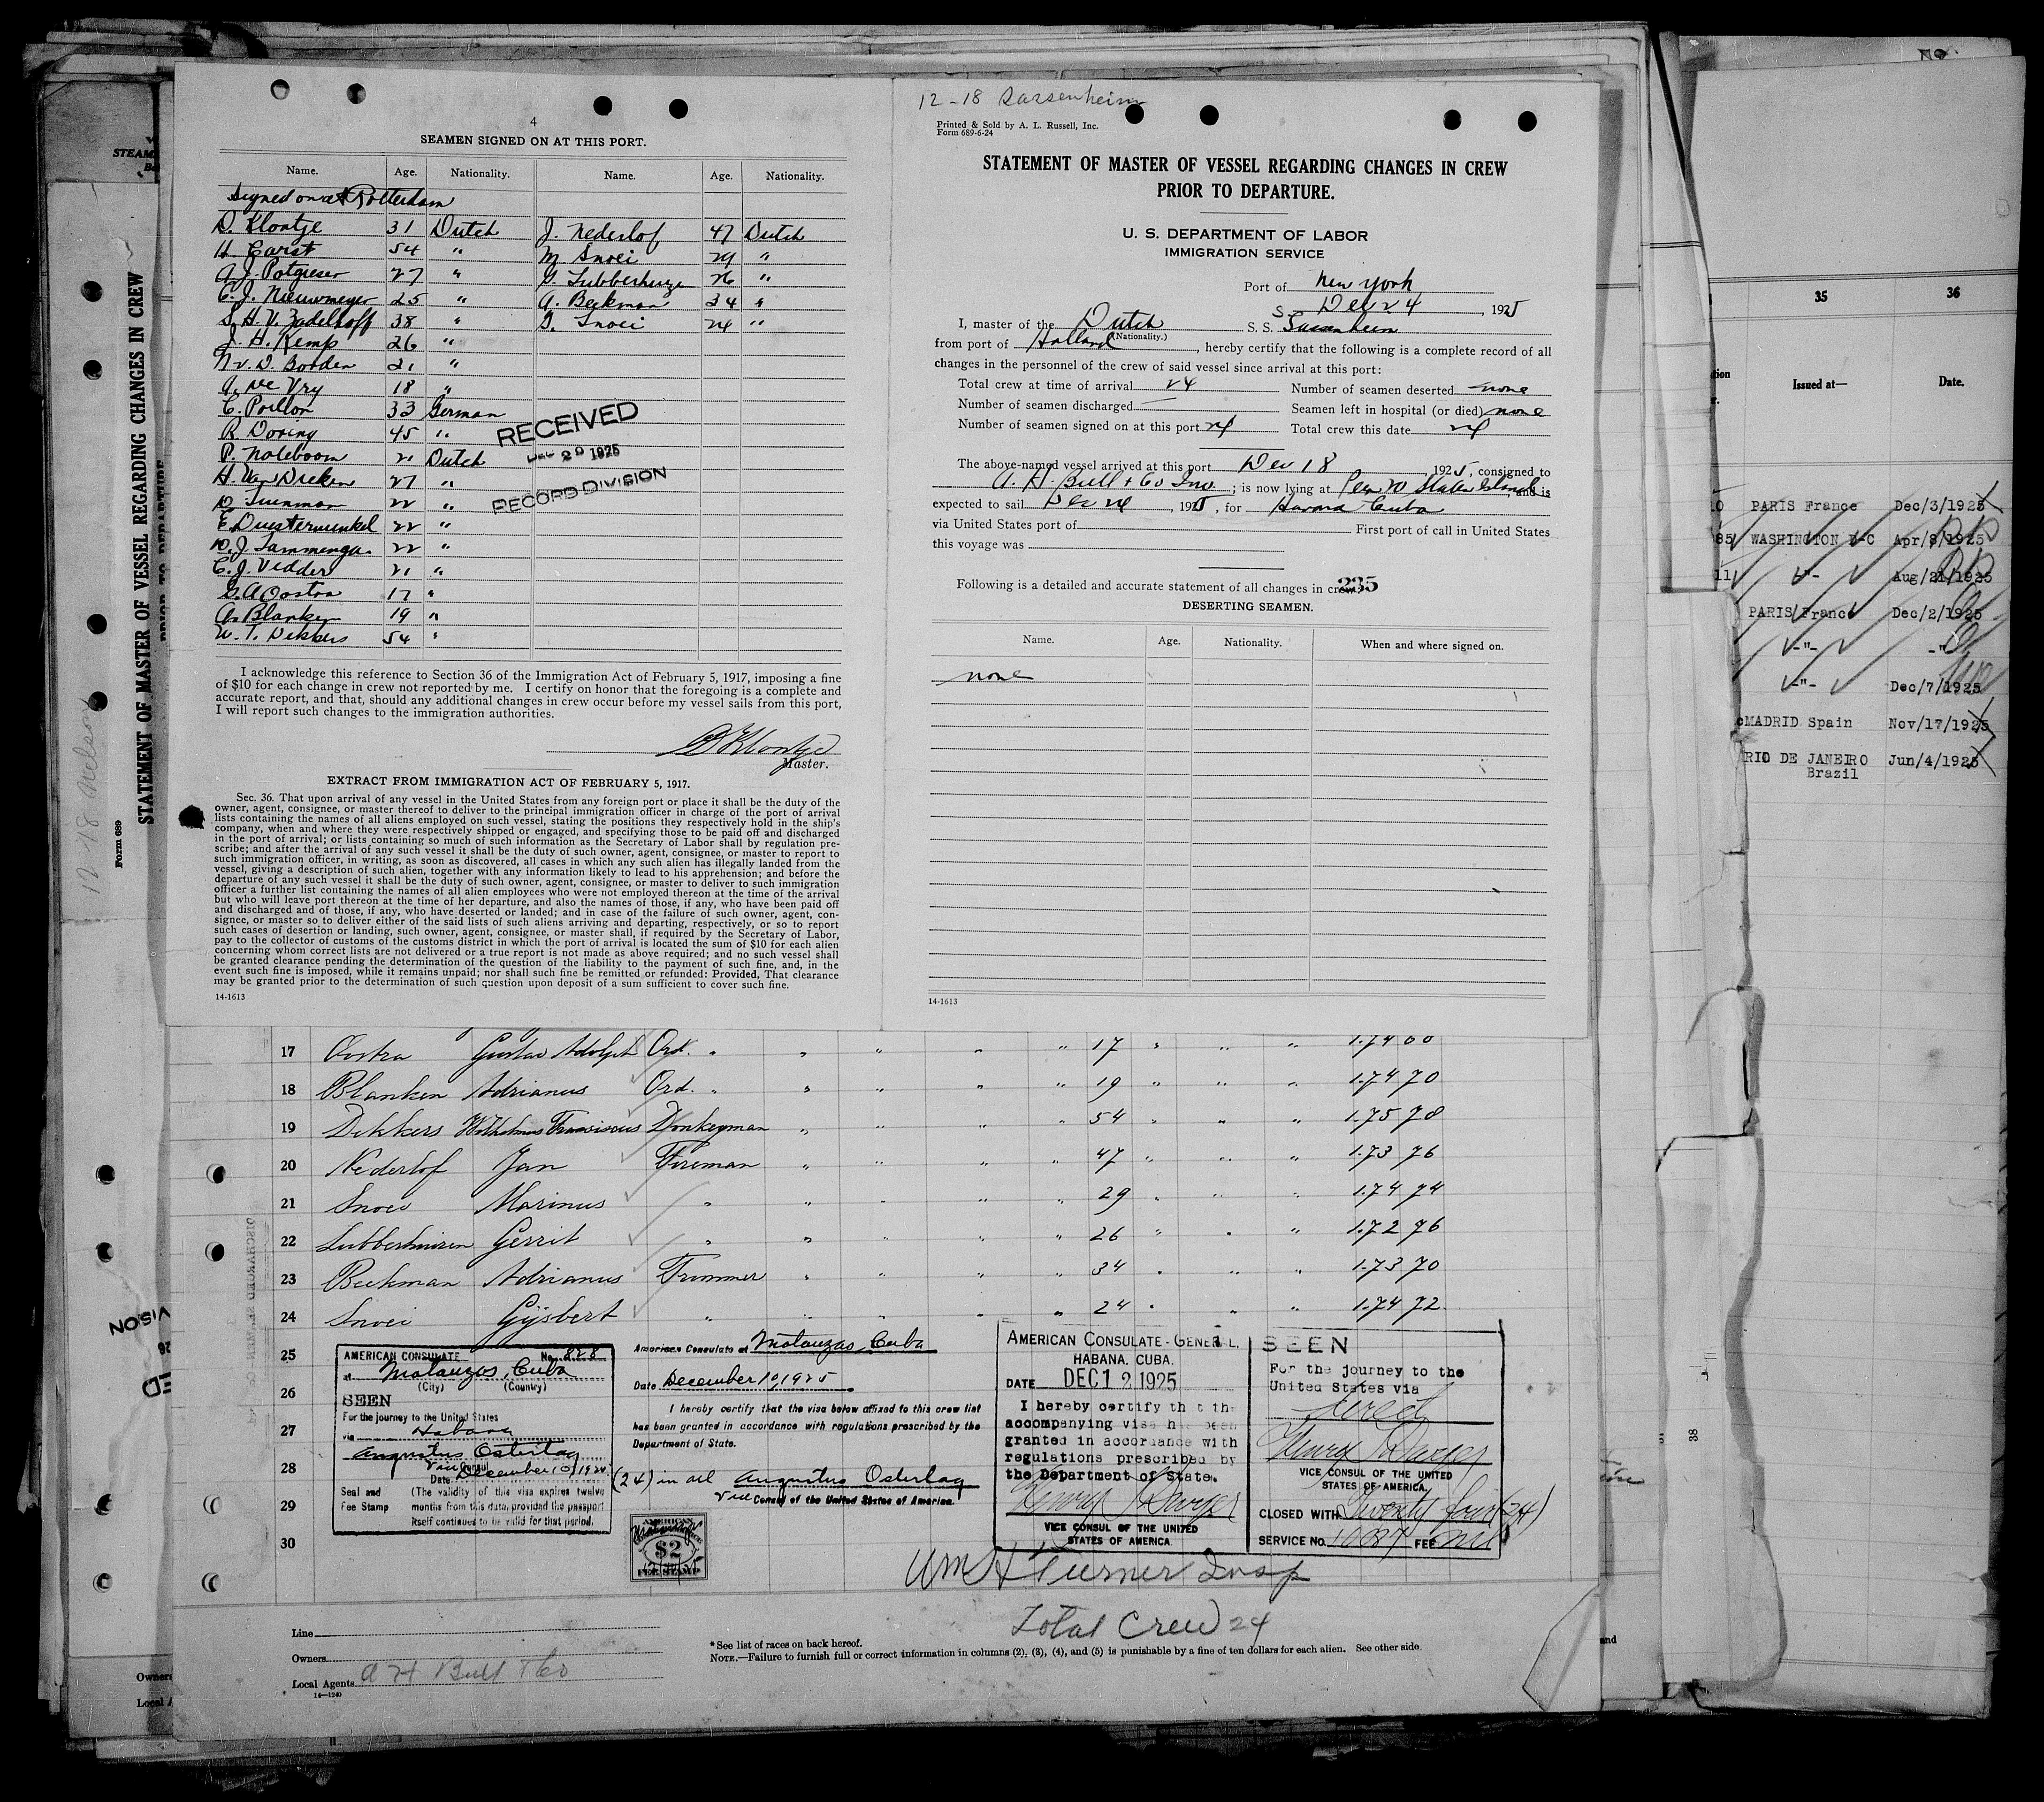 4
SEAMEN SIGNED ON AT THIS PORT.
Name. Age. Nationality. Name. Age. Nationality.
Signed on at Rotterdam
D. Klontje 31 Dutch J. Nederlof 47 Dutch
H. Carst 54 " M. Snoei 29 "
A. J. Potgieser 27 " G. Lubberhuize 26 "
C. J. Nieuwmeyer 25 " A. Beekman 34 "
S. H. V. Zadelhoff 38 " G. Snoei 24 "
J. H. Kemp 26 "
N. v. D. Borden 21 "
A. de Vry 18 "
C. Poellor 33 German
R. Doring 45 "
P. Noteboom 21 Dutch
H. Van Dieken 27 "
D. Tuinman 22 "
E. Duisterwinkel 22 "
D. J. Lammenga 22 "
C. J. Vedder 21 "
G. A Oostra 17 "
A. Blanken 19 "
W. T. Dekkers 54 "
RECEIVED
DEC 29 1925
RECORD DIVISION
I acknowledge this reference to Section 36 of the Immigration Act of February 5, 1917, imposing a fine
of $10 for each change in crew not reported by me. I certify on honor that the foregoing is a complete and
accurate report, and that, should any additional changes in crew occur before my vessel sails from this port,
I will report such changes to the immigration authorities.
D Klontje
Master.
EXTRACT FROM IMMIGRATION ACT OF FEBRUARY 5, 1917.
Sec. 36. That upon arrival of any vessel in the United States from any foreign port or place it shall be the duty of the
owner, agent, consignee, or master thereof to deliver to the principal immigration officer in charge of the port of arrival
lists containing the names of all aliens employed on such vessel, stating the positions they respectively hold in the ship's
company, when and where they were respectively shipped or engaged, and specifying those to be paid off and discharged
in the port of arrival; or lists containing so much of such information as the Secretary of Labor shall by regulation pre-
scribe; and after the arrival of any such vessel it shall be the duty of such owner, agent, consignee, or master to report to
such immigration officer, in writing, as soon as discovered, all cases in which any such alien has illegally landed from the
vessel, giving a description of such alien, together with any information likely to lead to his apprehension; and before the
departure of any such vessel it shall be the duty of such owner, agent, consignee, or master to deliver to such immigration
officer a further list containing the names of all alien employees who were not employed thereon at the time of the arrival
but who will leave port thereon at the time of her departure, and also the names of those, if any, who have been paid off
and discharged and of those, if any, who have deserted or landed; and in case of the failure of such owner, agent, con-
signee, or master so to deliver either of the said lists of such aliens arriving and departing, respectively, or so to report
such cases of desertion or landing, such owner, agent, consignee, or master, shall, if required by the Secretary of Labor,
pay to the collector of customs of the customs district in which the port of arrival is located the sum of $10 for each alien
concerning whom correct lists are not delivered or a true report is not made as above required; and no such vessel shall
be granted clearance pending the determination of the question of the liability to the payment of such fine, and, in the
event such fine is imposed, while it remains unpaid; nor shall such fine be remitted or refunded: Provided, That clearance
may be granted prior to the determination of such question upon deposit of a sum sufficient to cover such fine.
14-1613
12-18 Sassenheim
Printed & Sold by A. L. Russell, Inc.
Form 689-6-24
STATEMENT OF MASTER OF VESSEL REGARDING CHANGES IN CREW
PRIOR TO DEPARTURE.
U. S. DEPARTMENT OF LABOR
IMMIGRATION SERVICE
Port of New York
Dec 24, 1925
I, master of the Dutch S. S. Sassenheim
(Nationality.)
from port of Holland, hereby certify that the following is a complete record of all
changes in the personnel of the crew of said vessel since arrival at this port:
Total crew at time of arrival 24 Number of seamen deserted none
Number of seamen discharged — Seamen left in hospital (or died) none
Number of seamen signed on at this port 24 Total crew this date 24
The above-named vessel arrived at this port Dec 18, 1925, consigned to
A. H. Bull & Co Inc.; is now lying at Pier 10 Staten Island, and is
expected to sail Dec 24, 1925, for Havana Cuba
via United States port of First port of call in United States
this voyage was
Following is a detailed and accurate statement of all changes in crew:
235
DESERTING SEAMEN.
Name. Age. Nationality. When and where signed on.
none
14-1613
17 Oostra Gustav Adolph Ord. " " " " " 17 " " " 1.74 60
18 Blanken Adrianus Ord. " " " " " 19 " " " 1.74 70
19 Dekkers Wilhelmus Franciscus Donkeyman " " " " 54 " " " 1.75 78
20 Nederlof Jan Fireman " " " " 47 " " " 1.73 76
21 Snoei Marinus " " " " " 29 " " " 1.74 74
22 Lubberhuizen Gerrit " " " " " 26 " " " 1.72 76
23 Beekman Adrianus Trimmer " " " " 34 " " " 1.73 70
24 Snoei Gijsbert " " " " " 24 " " " 1.74 72
25
26
27
28
29
30
AMERICAN CONSULATE No. 828
at Matanzas, Cuba
(City) (Country)
SEEN
For the journey to the United States
via Habana
Augustus Ostertag
Vice Consul
Date December 10, 1925
Seal and Fee Stamp
(The validity of this visa expires twelve
months from this data, provided the passport
itself continues to be valid for that period.
American Consulate at Matanzas, Cuba
Date December 10, 1925
I hereby certify that the visa below affixed to this crew list
has been granted in accordance with regulations prescribed by the
Department of State.
(24) in all Augustus Ostertag
Vice Consul of the United States of America.
AMERICAN
$2
FEE STAMP
AMERICAN CONSULATE-GENERAL,
HABANA. CUBA.
DATE DEC 12 1925
I hereby certify that the
accompanying visa has been
granted in accordance with
regulations prescribed by
the Department of State.
VICE CONSUL OF THE UNITED
STATES OF AMERICA.
SEEN
For the journey to the
United States via
direct
VICE CONSUL OF THE UNITED
STATES OF AMERICA.
CLOSED WITH Twenty four (24)
SERVICE NO. 10087 FEE nil
Wm H Turner Insp
Total Crew 24
Line
Owners
Local Agents A H Bull & Co
14—1240
*See list of races on back hereof.
NOTE.—Failure to furnish full or correct information in columns (2), (3), (4), and (5) is punishable by a fine of ten dollars for each alien. See other side.
STATEMENT OF MASTER OF VESSEL REGARDING CHANGES IN CREW
PRIOR TO DEPARTURE
Form 689
35 36
Issued at— Date.
PARIS France Dec/3/1925
WASHINGTON D-C Apr/8/1925
-"- Aug/21/1925
PARIS/France Dec/2/1925
-"- -"-
-"- Dec/7/1925
MADRID Spain Nov/17/1925
RIO DE JANEIRO Jun/4/1925
Brazil
38